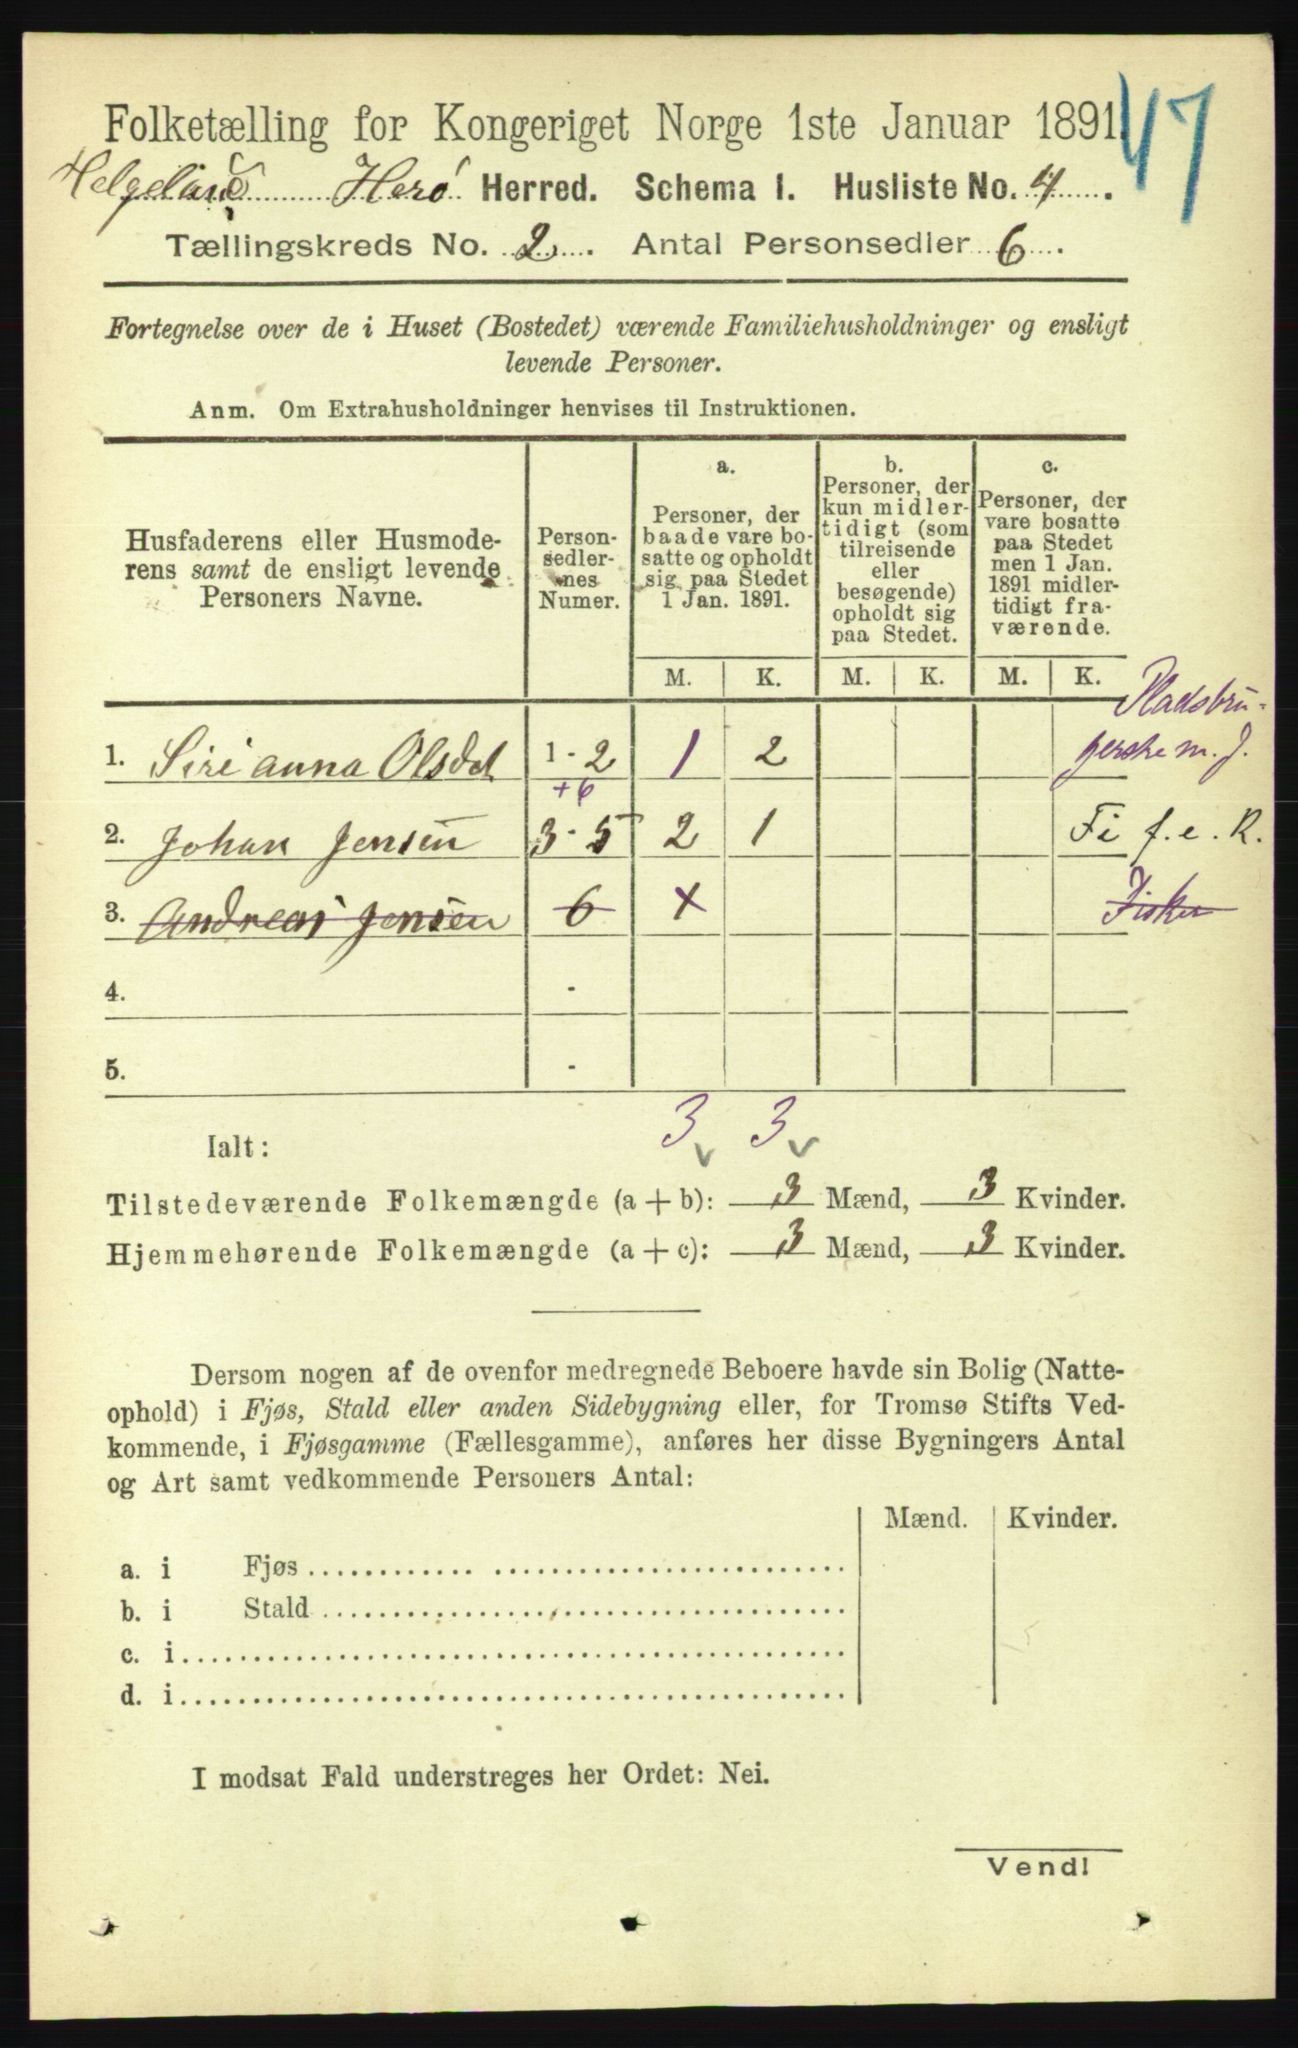 Folketælling for Kongeriget Norge 1ste Januar 1891.
47
Helgeland Herø Herred. Schema 1. Husliste No. 4.
Tællingskreds No. 2. Antal Personsedler 6.
Fortegnelse over de i Huset (Bostedet) værende Familiehusholdninger og ensligt
levende Personer.
Anm. Om Extrahusholdninger henvises til Instruktionen.
Husfaderens eller Husmode-
rens samt de ensligt levende
Personers Navne.
Person-
sedler-
nes
Numer.
a.
Personer, der
baade vare bo-
satte og opholdt
sig paa Stedet
1 Jan. 1891.
b.
Personer, der
kun midler-
tidigt (som
tilreisende
eller
besøgende)
opholdt sig
paa Stedet.
c.
Personer, der
vare bosatte
paa Stedet
men 1 Jan.
1891 midler-
tidigt fra-
værende.
M. K. M. K. M. K.
Pladsbru-
1. Sirianna Olsdat 1 - 2 1 2 gerske m. J.
+6
2. Johan Jensen 3 - 5 2 1 Fi f. e. R.
3. Andreas Jensen 6 x Fisker
4. -
5. -
Ialt: 3 3
Tilstedeværende Folkemængde (a + b): 3 Mænd, 3 Kvinder.
Hjemmehørende Folkemængde (a + c): 3 Mænd, 3 Kvinder.
Dersom nogen af de ovenfor medregnede Beboere havde sin Bolig (Natte-
ophold) i Fjøs, Stald eller anden Sidebygning eller, for Tromsø Stifts Ved-
kommende, i Fjøsgamme (Fællesgamme), anføres her disse Bygningers Antal
og Art samt vedkommende Personers Antal:
Mænd. Kvinder.
a. i Fjøs
b. i Stald
c. i
d. i
I modsat Fald understreges her Ordet: Nei.
Vend!